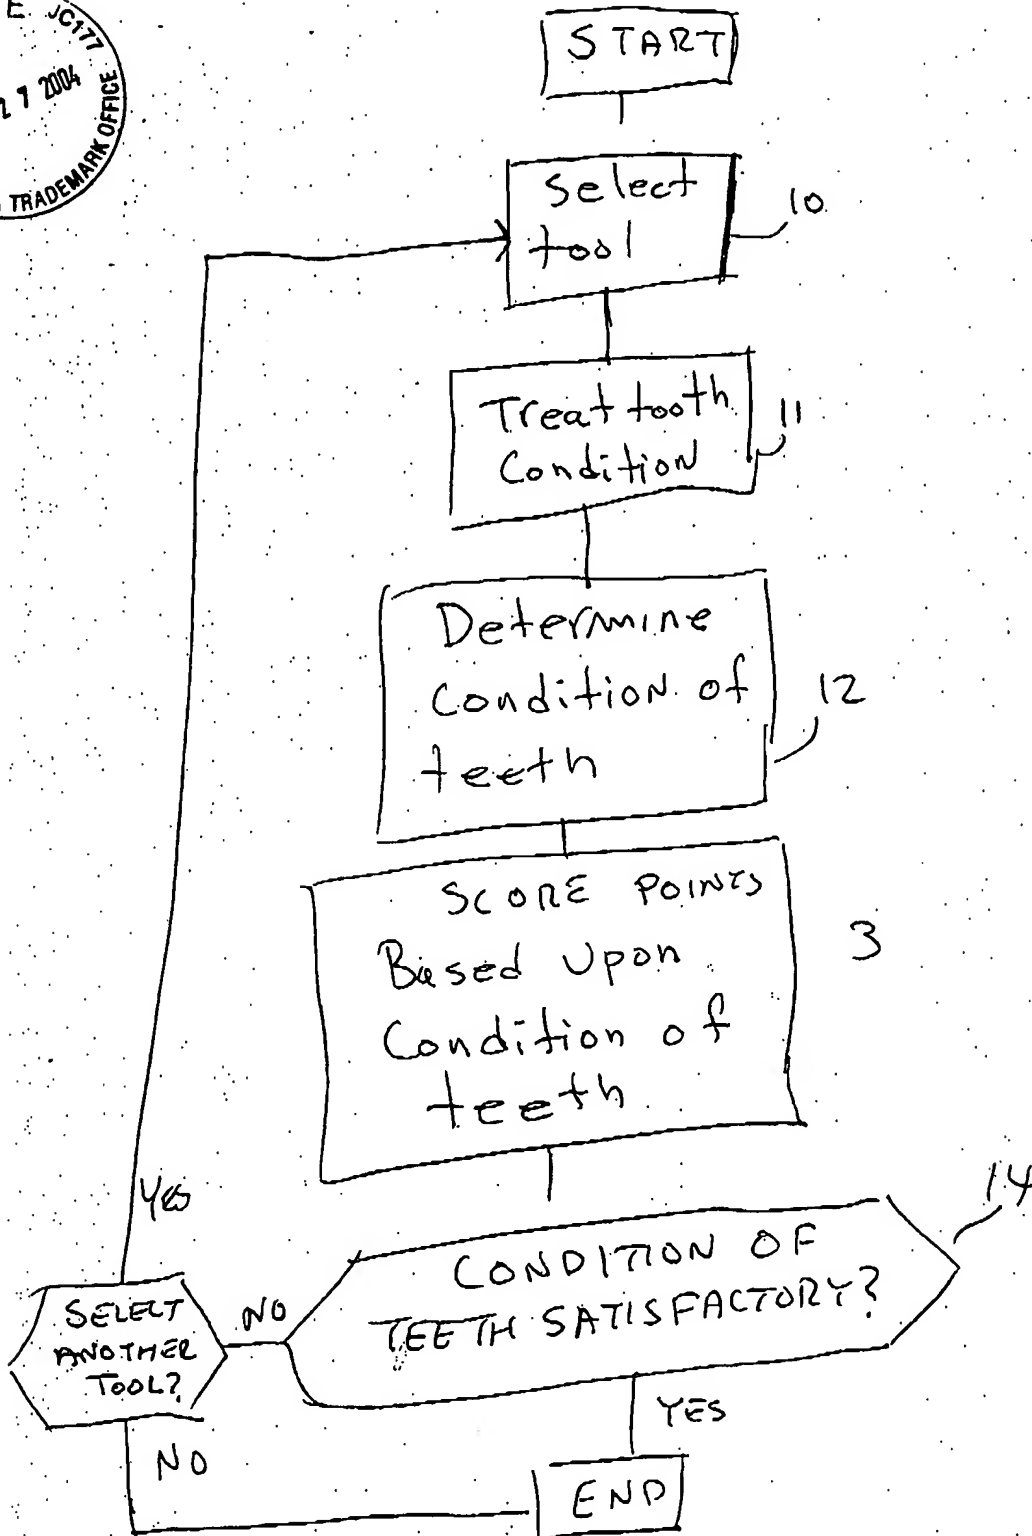 E JC177
27 2004
TRADEMARK OFFICE
START
Select
tool
10
Treat tooth
Condition
11
Determine
Condition of
teeth
12
SCORE POINTS
Based Upon
Condition of
teeth
3
YES
14
CONDITION OF
TEETH SATISFACTORY?
NO
SELECT
ANOTHER
TOOL?
YES
NO
END